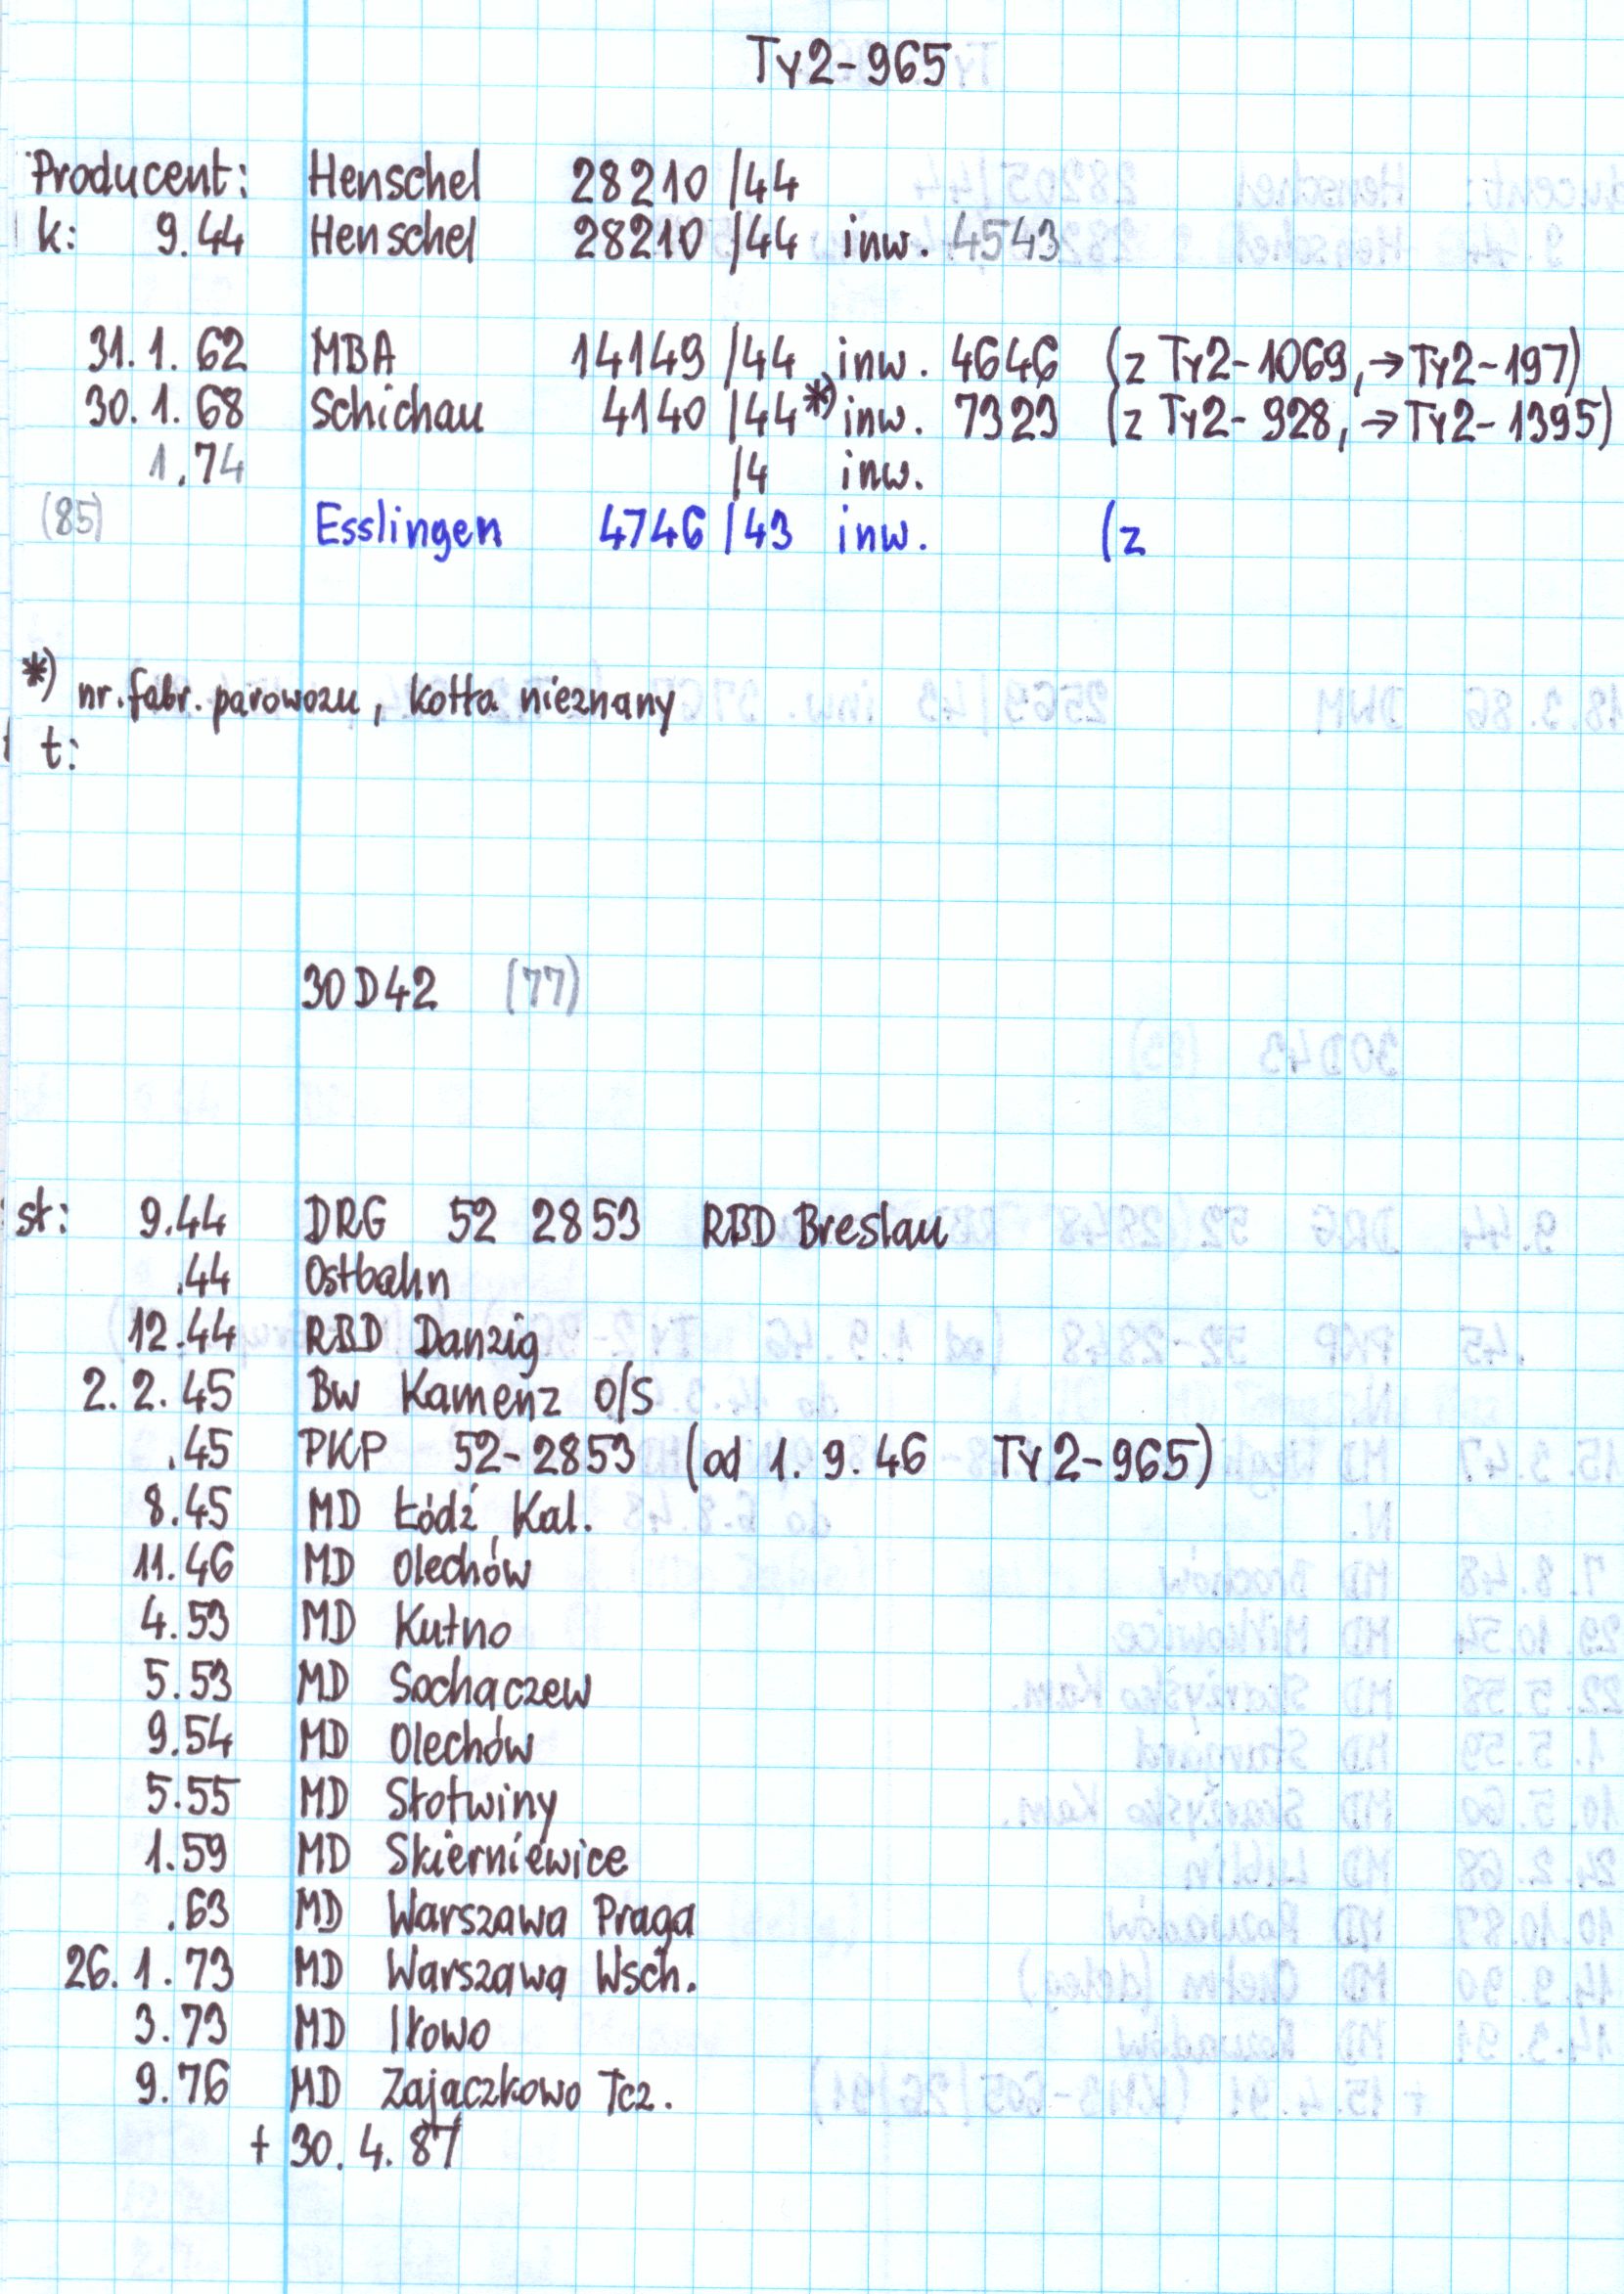 Ty2-965
Producent: Henschel 28210 /44
k: 9.44 Henschel 28210 /44 inw. 4543
31.1.62 MBA 14149 /44 inw. 4646 (z Ty2-1069, →Ty2-197)
30.1.68 Schichau 4140 /44 *) inw. 7323 (z Ty2-928, →Ty2-1395)
1.74 /4 inw.
(85) Esslingen 4746 /43 inw. (z
*) nr. fabr. parowozu, kotła nieznany
t:
30D42 (77)
st: 9.44 DRG 52 2853 RBD Breslau
.44 Ostbahn
12.44 RBD Danzig
2.2.45 Bw Kamenz O/S
.45 PKP 52-2853 (od 1.9.46 Ty2-965)
8.45 MD Łódź Kal.
11.46 MD Olechów
4.53 MD Kutno
5.53 MD Sochaczew
9.54 MD Olechów
5.55 MD Słotwiny
1.59 MD Skierniewice
.63 MD Warszawa Praga
26.1.73 MD Warszawa Wsch.
3.73 MD Iłowo
9.76 MD Zajączkowo Tcz.
+ 30.4.87